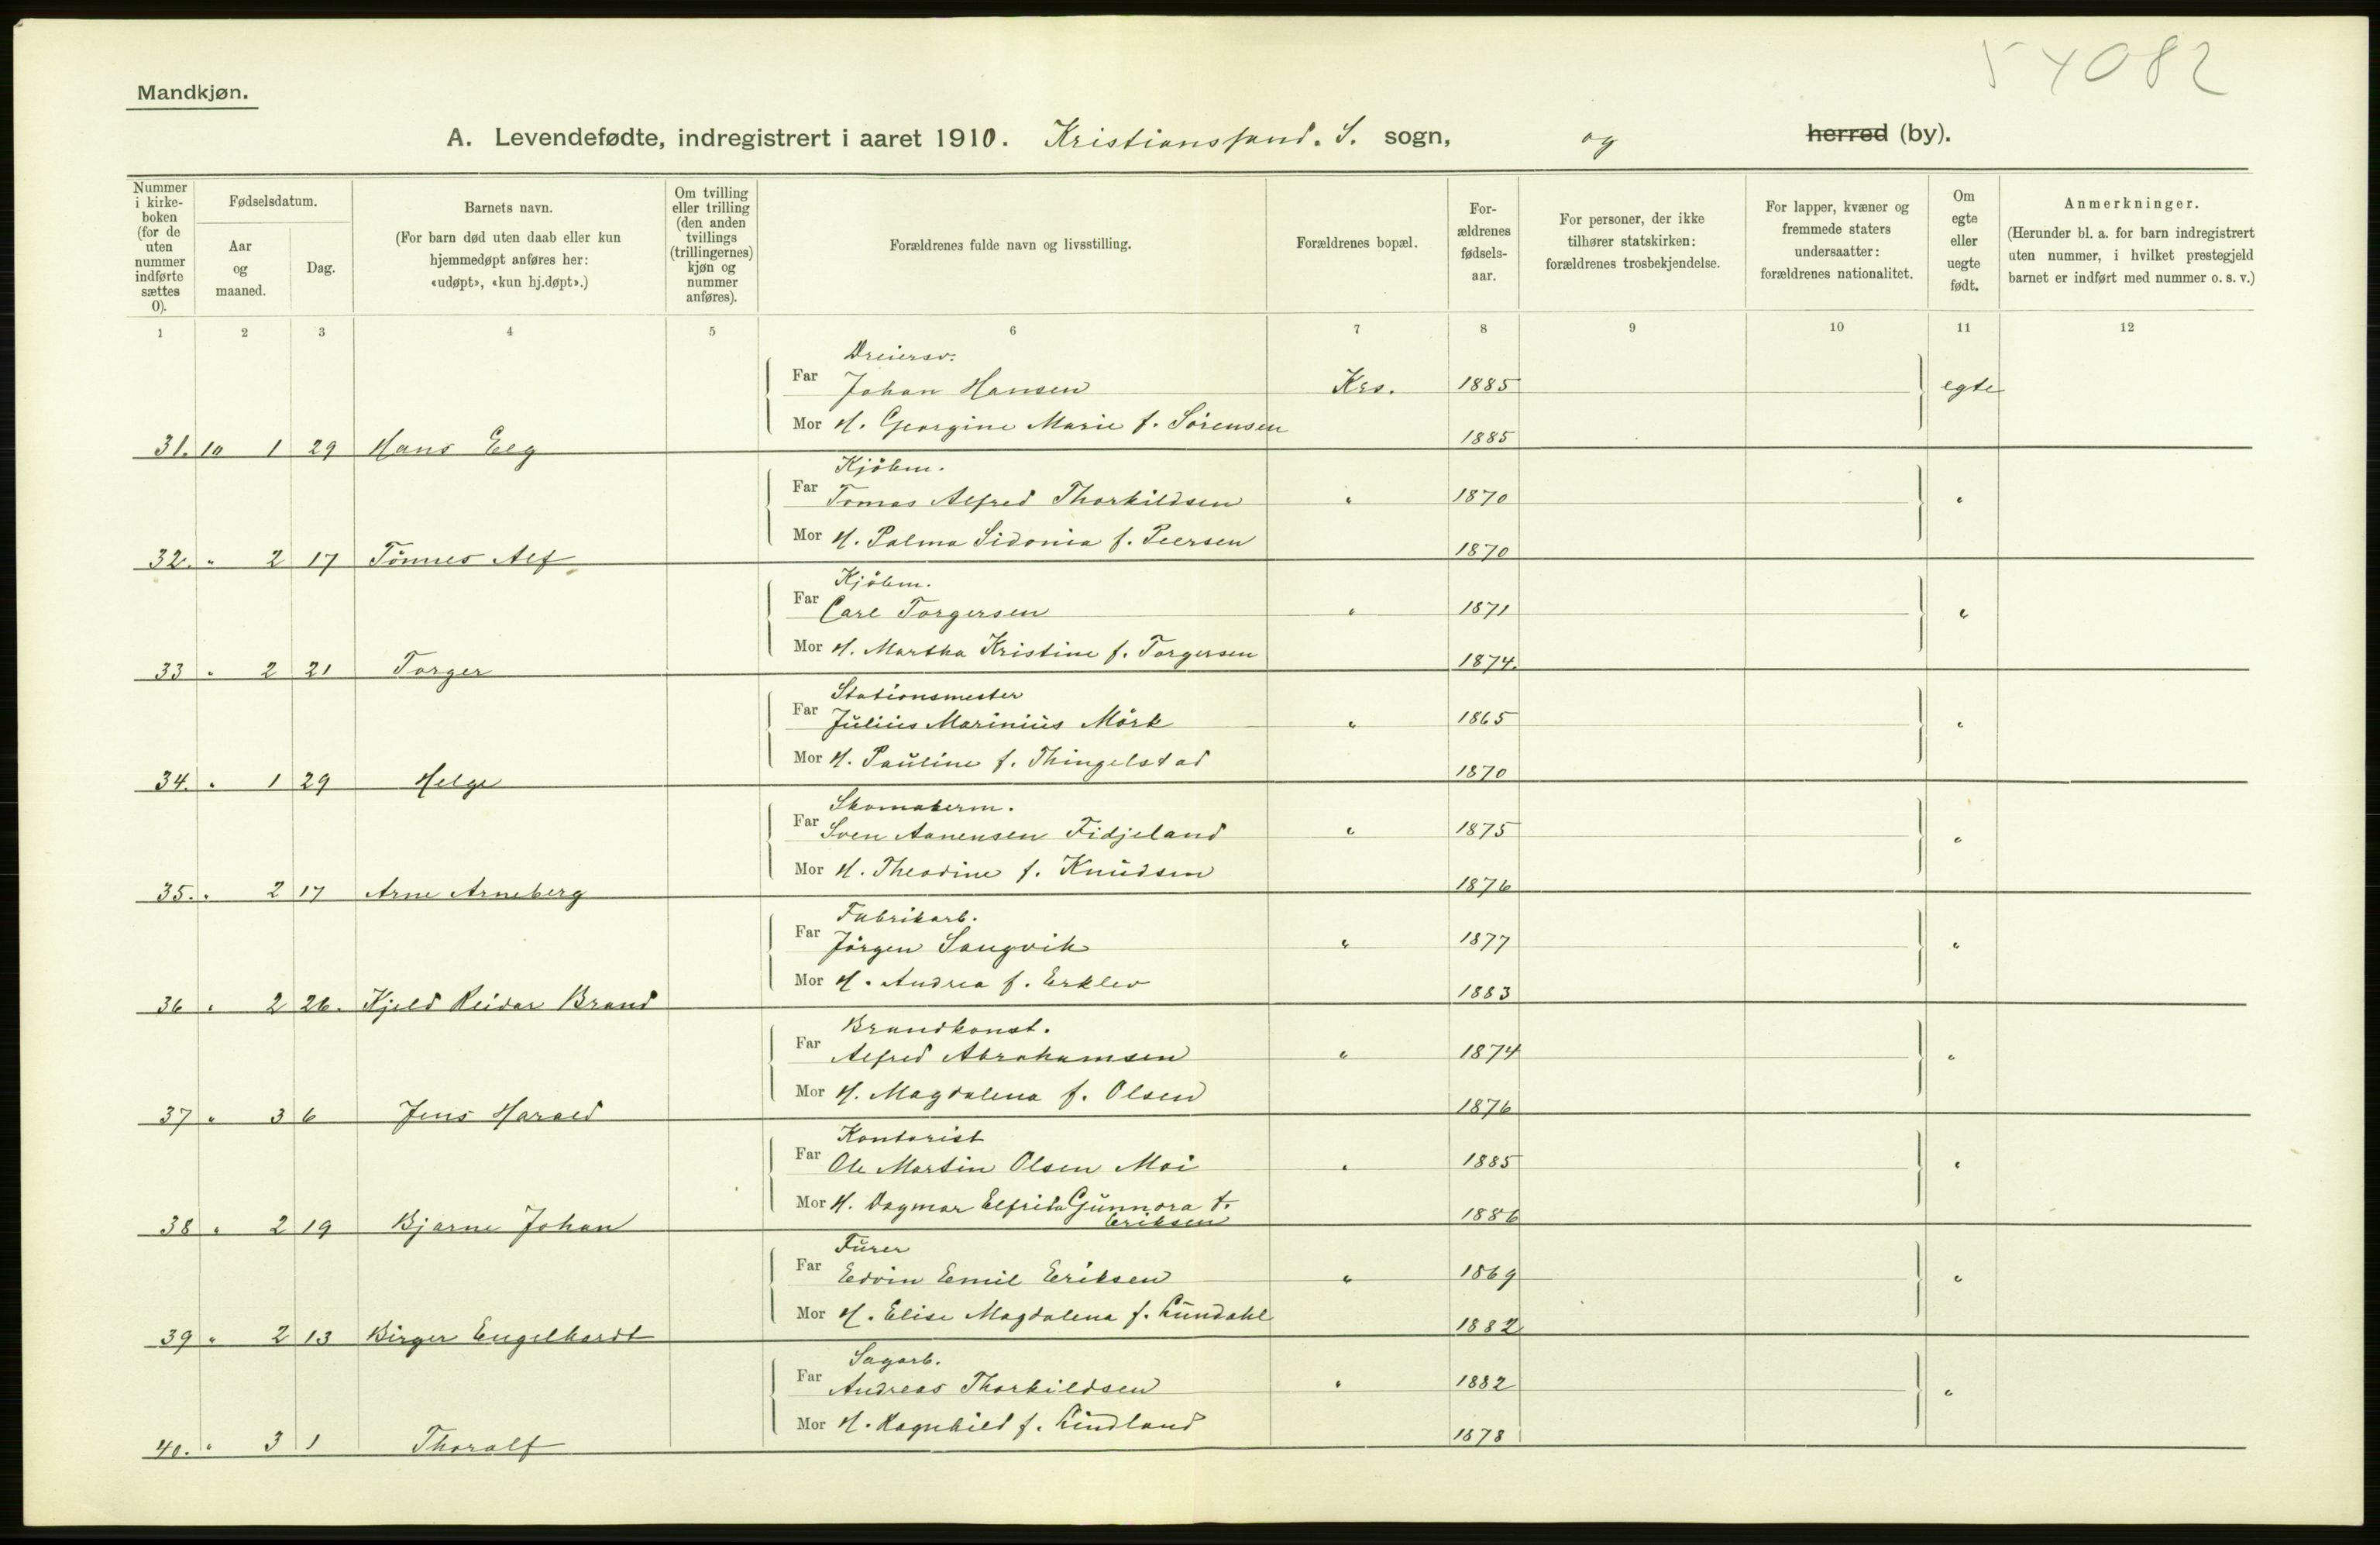 54082
Mandkjøn.
A. Levendefødte, indregistrert i aaret 1910. Kristianssand. S. sogn, og herred (by).
Nummer i kirkeboken (for de uten nummer indførte sættes 0).
Fødselsdatum.
Aar og maaned.
Dag.
Barnets navn.
(For barn død uten daab eller kun hjemmedøpt anføres her: «udøpt», «kun hj.døpt».)
Om tvilling eller trilling (den anden tvillings (trillingernes) kjøn og nummer anføres).
Forældrenes fulde navn og livsstilling.
Forældrenes bopæl.
Forældrenes fødselsaar.
For personer, der ikke tilhører statskirken: forældrenes trosbekjendelse.
For lapper, kvæner og fremmede staters undersaatter: forældrenes nationalitet.
Om egte eller uegte født.
Anmerkninger.
(Herunder bl. a. for barn indregistrert uten nummer, i hvilket prestegjeld barnet er indført med nummer o. s. v.)
1 2 3 4 5 6 7 8 9 10 11 12
Dreiersv.
Far Johan Hansen Krs. 1885 egte
Mor H. Georgine Marie f. Sörensen 1885
31. 10 1 29 Hans Eeg
Kjöbm.
Far Tomas Alfred Thorkildsen " 1870 "
Mor H. Palma Sidonia f. Peersen 1870
32. " 2 17 Tönnes Alf
Kjöbm.
Far Carl Torgersen " 1871 "
Mor H. Martha Kristine f. Torgersen 1874.
33 " 2 21 Torger
Stationsmester
Far Julius Marinius Mörk " 1865 "
Mor H. Pauline f. Thingelstad 1870
34. " 1 29 Helge
Skomakerm.
Far Sven Aanensen Fidjeland " 1875 "
Mor H. Theodine f. Knudsen 1876
35. " 2 17 Arne Arneberg
Fabrikarb.
Far Jörgen Sangvik " 1877 "
Mor H. Andrea f. Erklev 1883
36 " 2 26. Kjeld Reidar Brand
Brandkonst.
Far Alfred Abrahamsen " 1874 "
Mor H. Magdalena f. Olsen 1876
37 " 3 6 Jens Harald
Kontorist
Far Ole Martin Olsen Moi " 1885 "
Mor H. Dagmar Elfrida Gunnora f. Eriksen 1886
38 " 2 19 Bjarne Johan
Furer
Far Edvin Emil Eriksen " 1869 "
Mor H. Elise Magdalena f. Lundahl 1882
39 " 2 13 Birger Engelhardt
Sagarb.
Far Andreas Thorkildsen " 1882 "
Mor H. Ragnhild f. Lindland 1878
40. " 3 1 Thoralf